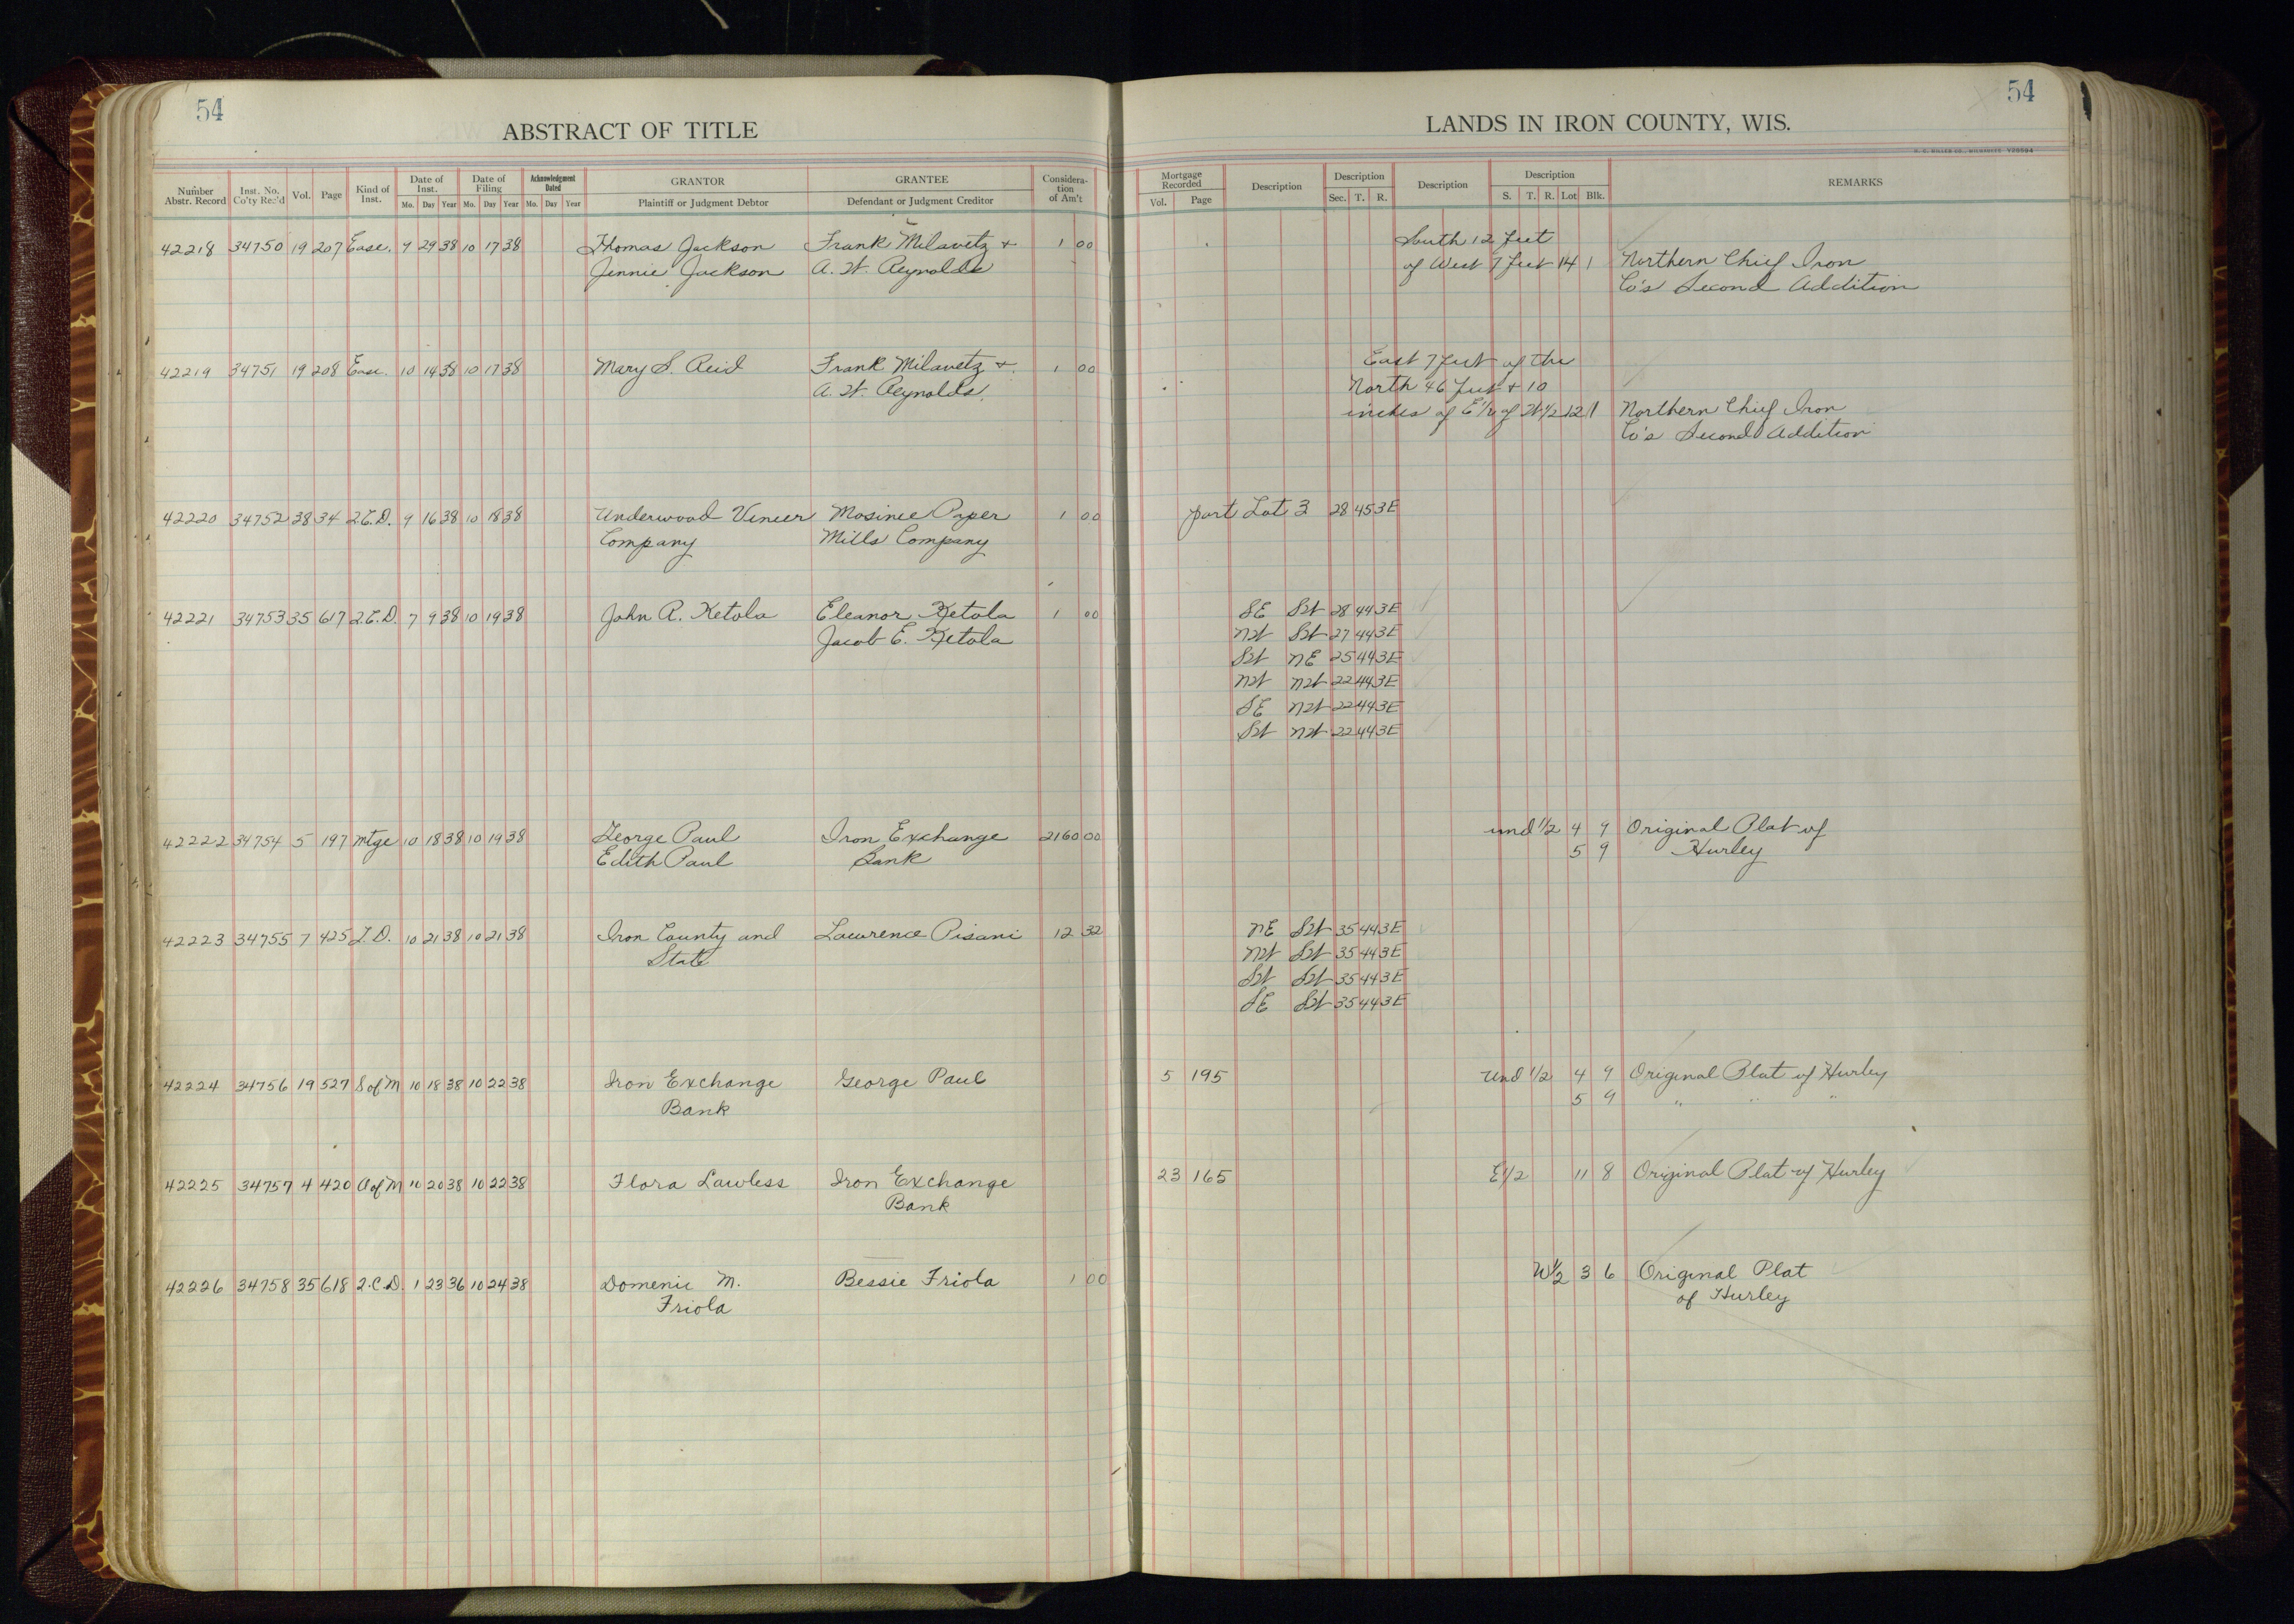 54
54
ABSTRACT OF TITLE
LANDS IN IRON COUNTY, WIS.
Number Abstr. Record
Inst. No. Co'ty Rec'd
Vol.
Page
Kind of Inst.
Date of Inst.
Mo. Day Year
Date of Filing
Mo. Day Year
Acknowledgment Dated
Mo. Day Year
GRANTOR
Plaintiff or Judgment Debtor
GRANTEE
Defendant or Judgment Creditor
Consideration of Am't
Mortgage Recorded
Vol. Page
Description
Description
Sec. T. R.
Description
Description
S. T. R. Lot Blk.
REMARKS
42218 34750 19 207 Ease. 9 29 38 10 17 38 Thomas Jackson Frank Milavetz + 1 00 South 12 feet
Jennie Jackson A. W. Reynolds of West 7 feet 14 1 Northern Chief Iron
Co's Second Addition
42219 34751 19 208 Ease. 10 14 38 10 17 38 Mary S. Reid Frank Milavetz + 1 00 East 7 feet of the
A. W. Reynolds North 46 feet + 10
inches of E 1/2 of W 1/2 12 1 Northern Chief Iron
Co's Second Addition
42220 34752 38 34 2.C.D. 9 16 38 10 18 38 Underwood Veneer Mosinee Paper 1 00 part Lot 3 28 45 3E
Company Mills Company
42221 34753 35 617 2.C.D. 7 9 38 10 19 38 John R. Ketola Eleanor Ketola 1 00 SE SW 28 44 3E
Jacob E. Ketola NW SW 27 44 3E
SW NE 25 44 3E
NW NW 22 44 3E
SE NW 22 44 3E
SW NW 22 44 3E
42222 34754 5 197 Mtge 10 18 38 10 19 38 George Paul Iron Exchange 2160 00 und 1/2 4 9 Original Plat of
Edith Paul Bank 5 9 Hurley
42223 34755 7 425 T.D. 10 21 38 10 21 38 Iron County and Lawrence Pisani 12 32 NE SW 35 44 3E
State NW SW 35 44 3E
SW SW 35 44 3E
SE SW 35 44 3E
42224 34756 19 527 S of M 10 18 38 10 22 38 Iron Exchange George Paul 5 195 Und 1/2 4 9 Original Plat of Hurley
Bank 5 9 " " "
42225 34757 4 420 A of M 10 20 38 10 22 38 Flora Lawless Iron Exchange 23 165 E 1/2 11 8 Original Plat of Hurley
Bank
42226 34758 35 618 2.C.D. 1 23 36 10 24 38 Domenic M. Bessie Friola 1 00 W 1/2 3 6 Original Plat
Friola of Hurley